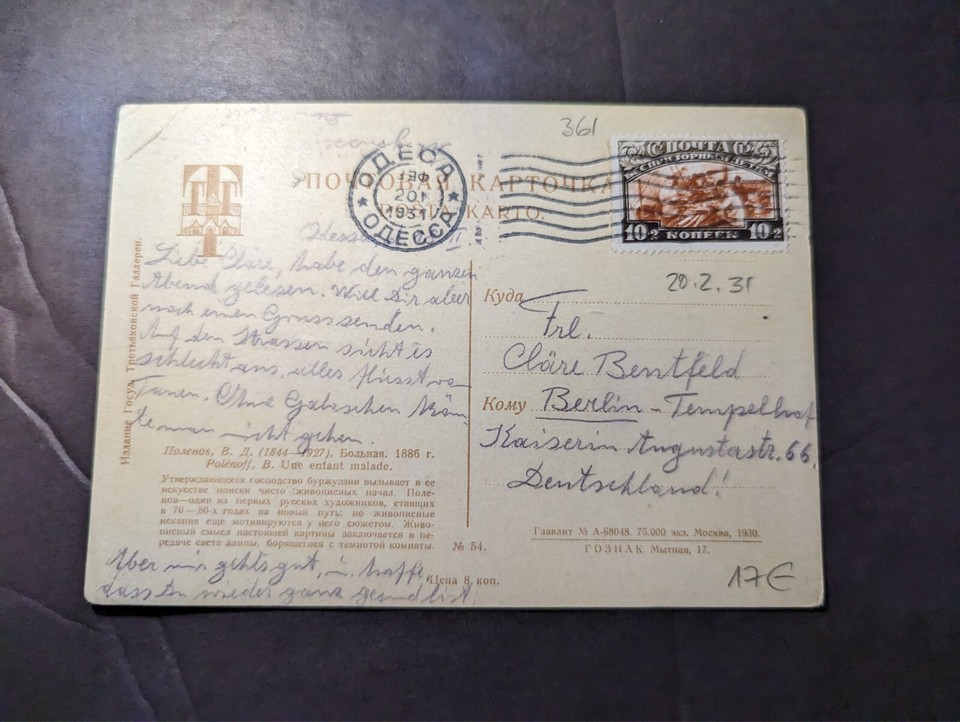 361
ПОЧТА
БЕСПРИЗОРНЫМ ДЕТЯМ
10 к КОПЕЕК 10 к
ОДЕСА
ФЕВ
20.
1931
ОДЕССА
ПОЧТОВАЯ КАРТОЧКА
POŜTA KARTO.
20.2.31
Odessa II
Liebe Cläre, habe den ganzen
Abend gelesen. Will Dir aber
noch einen Gruss senden.
Auf den Strassen sieht es
schlecht aus, alles fliesst vo
Tauen. Ohne Galoschen kön-
te man nicht gehen.
Aber mir gehts gut, u. hoffe,
dass Du wieder ganz gesund bist.
Издание Госуд. Третьяковской Галлереи.
Поленов, В. Д. (1844—1927). Больная. 1886 г.
Polenoff, B. Une enfant malade.
Утверждающееся господство буржуазии вызывает в ее
искусстве поиски чисто живописных начал. Поле-
нов—один из первых русских художников, ставших
в 70—80-х годах на новый путь; но живописные
искания еще мотивируются у него сюжетом. Живо-
писный смысл настоящей картины заключается в пе-
редаче света лампы, борящегося с темнотой комнаты.
№ 54.
Цена 8 коп.
Куда
Frl.
Cläre Bentfeld
Кому Berlin - Tempelhof
Kaiserin Augustastr. 66.
Deutschland!
Главлит № А-68048. 75.000 экз. Москва, 1930.
ГОЗНАК Мытная, 17.
17€